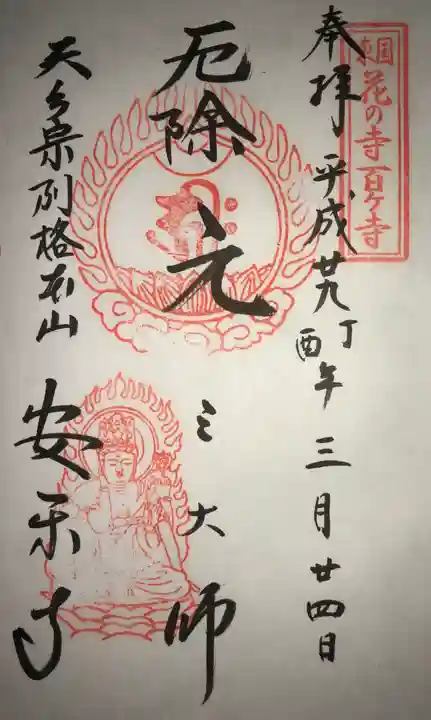 東国花の寺百ヶ寺
奉拝 平成廿九丁酉年 三月廿四日
厄除 元三大師
天台宗別格本山 安楽寺